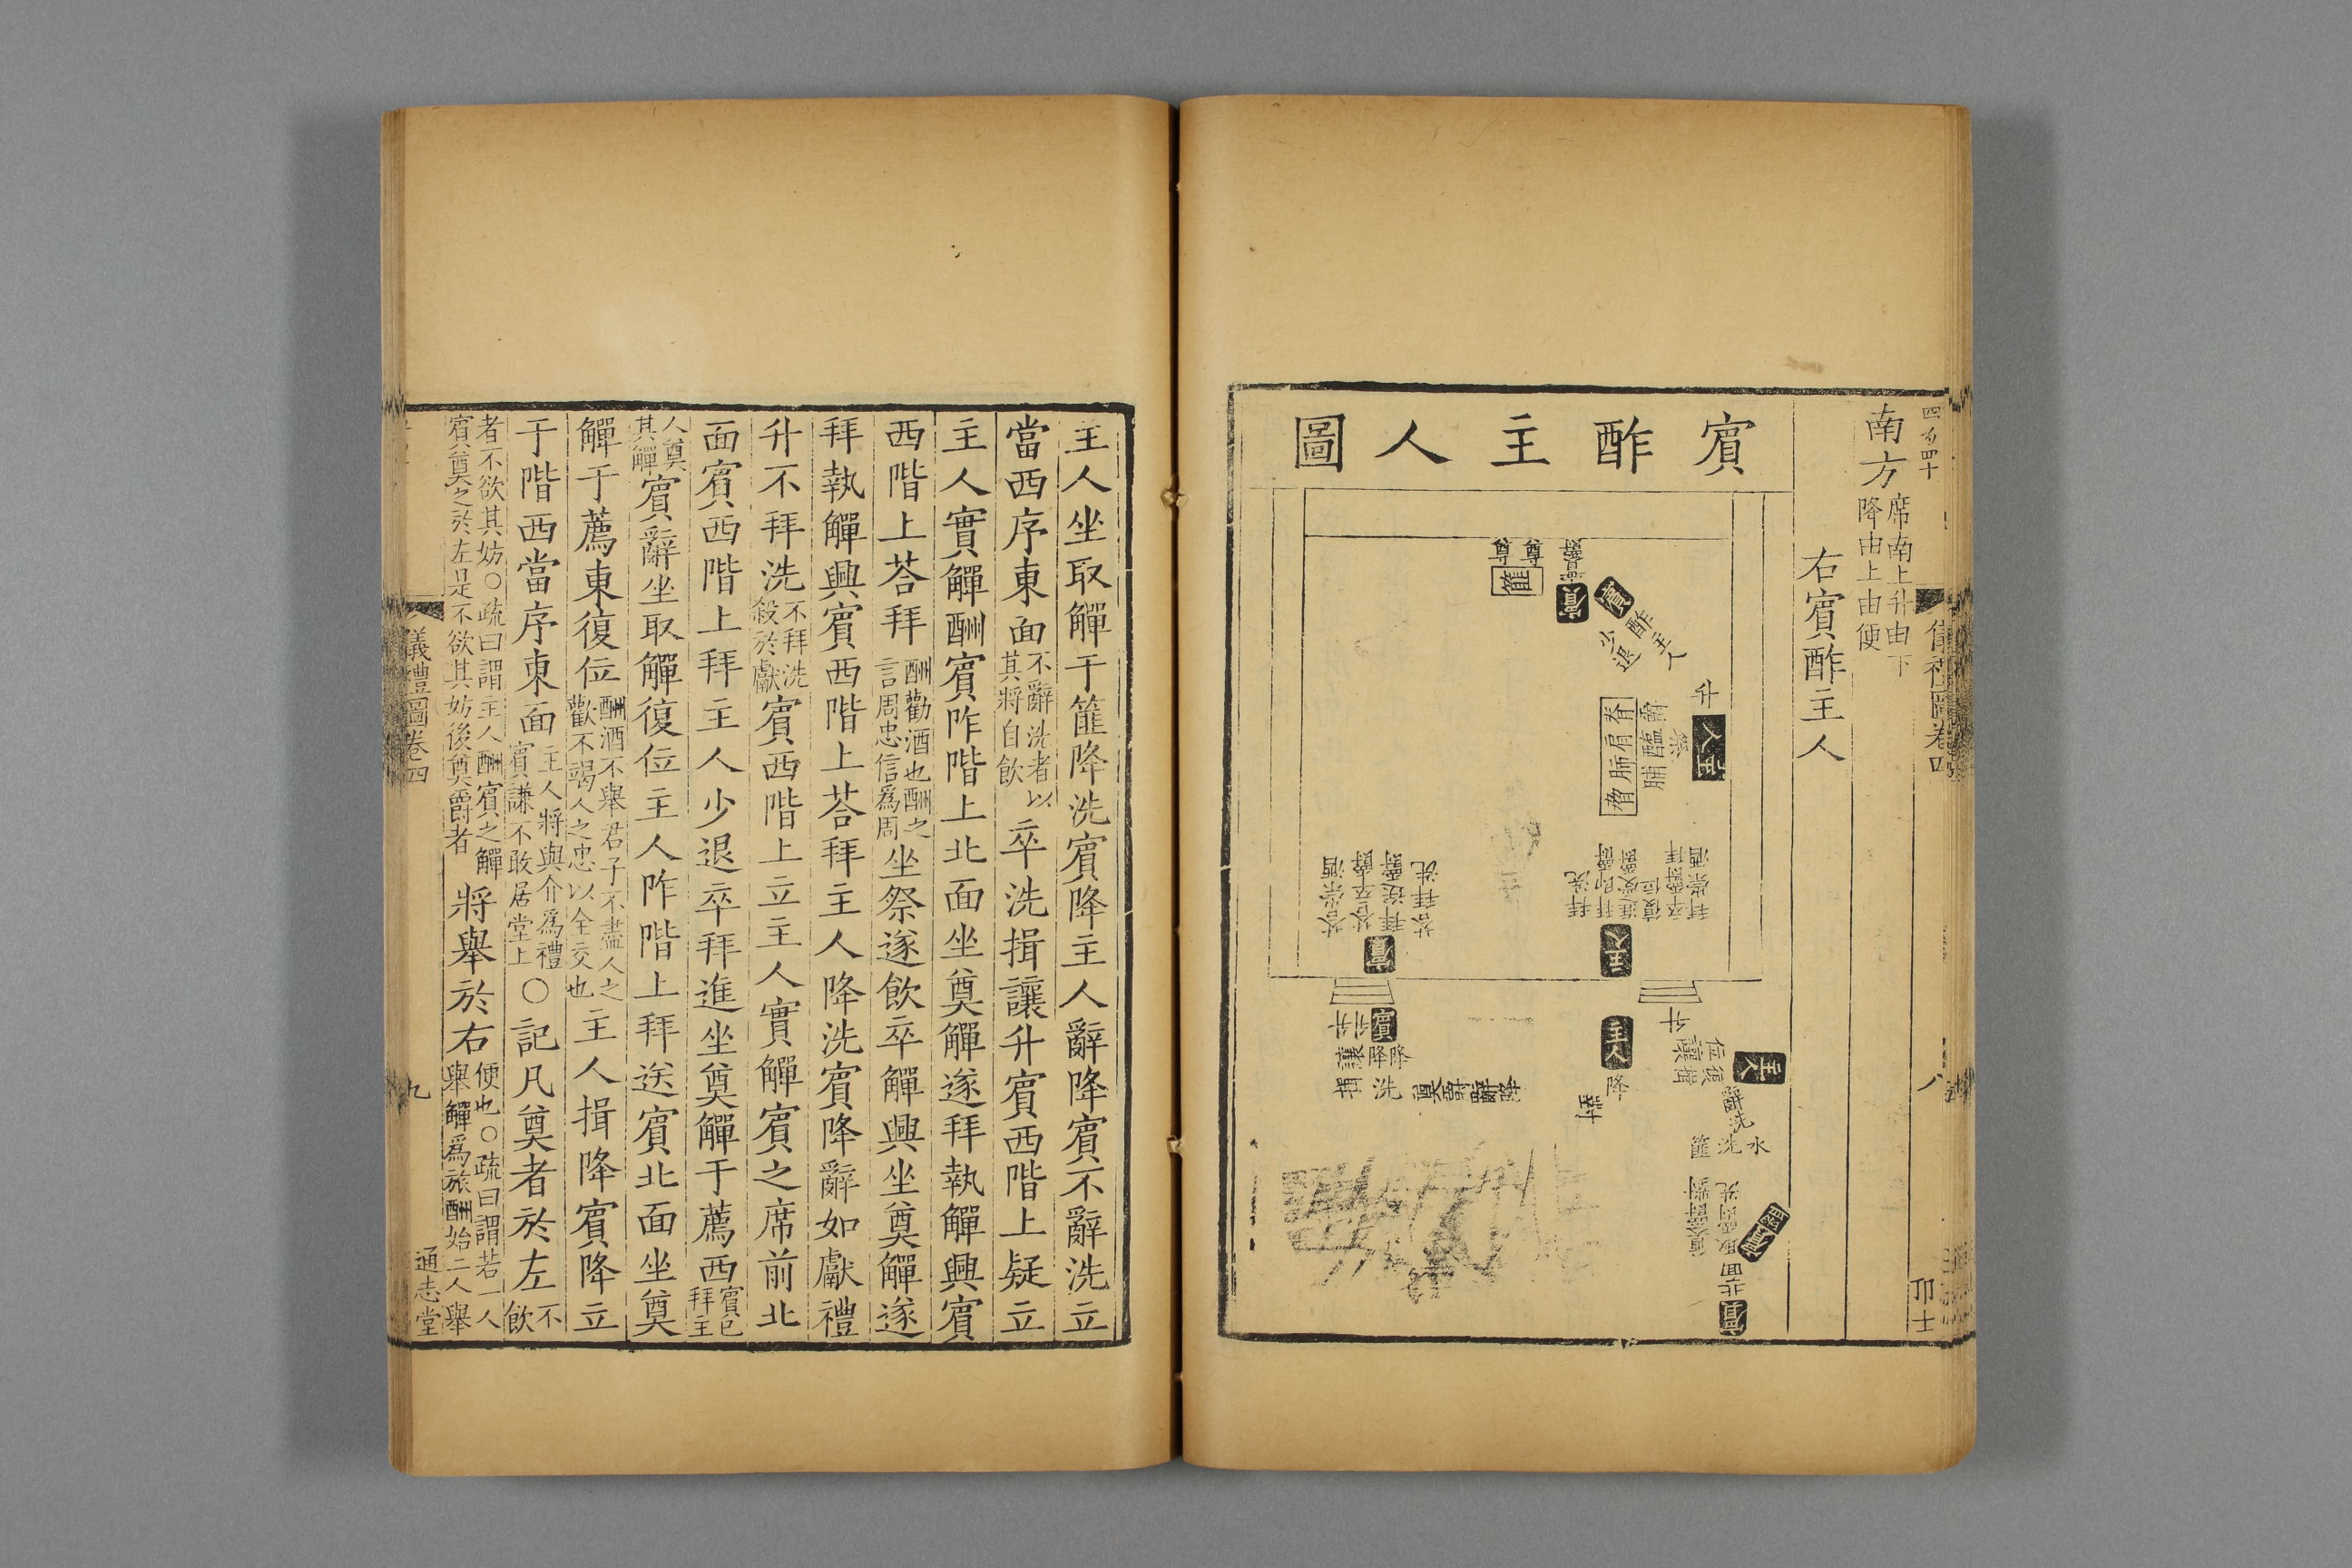 四百四十
南方席南上升由下
降由上由便
右賓酢主人
儀禮圖卷四
八
賓酢主人圖
尊
尊
篚
賓
賓
酢主人
少退
升
主人
脊
肩
肺
脯醢
祭
拜洗
主人
荅拜洗
賓
升
賓
主人
降
對
升
主人
水
洗
篚
北面
賓
主人坐取觶于篚降洗賓降主人辭降賓不辭洗立
當西序東面不辭洗者以
其將自飲卒洗揖讓升賓西階上疑立
主人實觶酬賓阼階上北面坐奠觶遂拜執觶興賓
西階上荅拜酬勸酒也酬之
言周忠信爲周坐祭遂飲卒觶興坐奠觶遂
拜執觶興賓西階上荅拜主人降洗賓降辭如獻禮
升不拜洗不拜洗
殺於獻賓西階上立主人實觶賓之席前北
面賓西階上拜主人少退卒拜進坐奠觶于薦西賓已
拜主
人奠
其觶賓辭坐取觶復位主人阼階上拜送賓北面坐奠
觶于薦東復位酬酒不舉君子不盡人之
歡不竭人之忠以全交也主人揖降賓降立
于階西當序東面主人將與介爲禮
賓謙不敢居堂上○記凡奠者於左不
飲
者不欲其妨○疏曰謂主人酬賓之觶
賓奠之於左是不欲其妨後奠爵者將舉於右便也○疏曰謂若一人
舉觶爲旅酬始二人舉
儀禮圖卷四
九
通志堂